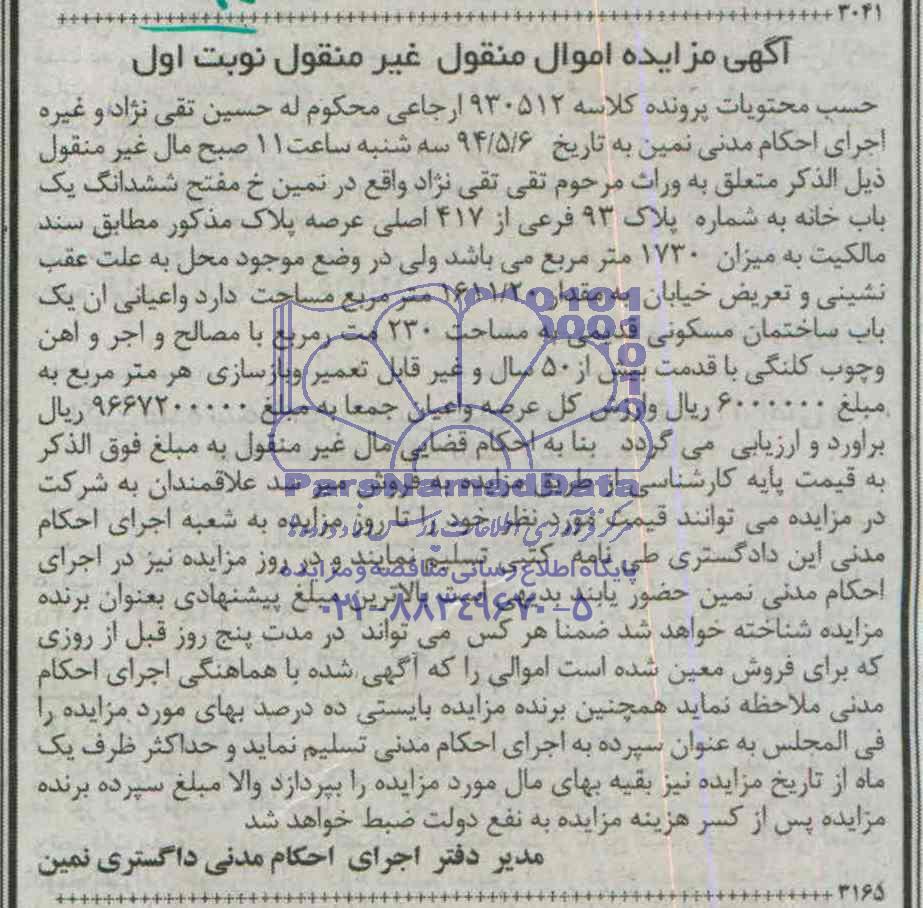 ۳۰۴۱
آگهی مزایده اموال منقول غیر منقول نوبت اول
حسب محتویات پرونده کلاسه ۹۳۰۵۱۲ ارجاعی محکوم له حسین تقی نژاد و غیره
اجرای احکام مدنی نمین به تاریخ ۹۴/۵/۶ سه شنبه ساعت۱۱ صبح مال غیر منقول
ذیل الذکر متعلق به وراث مرحوم تقی تقی نژاد واقع در نمین خ مفتح ششدانگ یک
باب خانه به شماره پلاک ۹۳ فرعی از ۴۱۷ اصلی عرصه پلاک مذکور مطابق سند
مالکیت به میزان ۱۷۳۰ متر مربع می باشد ولی در وضع موجود محل به علت عقب
نشینی و تعریض خیابان به مقدار ۱۶۱۱/۲۰ متر مربع مساحت دارد واعیانی ان یک
باب ساختمان مسکونی قدیمی به مساحت ۲۳۰ مت رمربع با مصالح و اجر و اهن
وچوب کلنگی با قدمت بیش از۵۰ سال و غیر قابل تعمیر وبازسازی هر متر مربع به
مبلغ ۶۰۰۰۰۰۰ ریال وارزش کل عرصه واعیان جمعا به مبلغ ۹۶۶۷۲۰۰۰۰۰ ریال
براورد و ارزیابی می گردد بنا به احکام قضایی مال غیر منقول به مبلغ فوق الذکر
به قیمت پایه کارشناسی از طریق مزایده به فروش میر سد علاقمندان به شرکت
در مزایده می توانند قیمت مورد نظر خود را تا روز مزایده به شعبه اجرای احکام
مدنی این دادگستری طی نامه کتبی تسلیم نمایند و در روز مزایده نیز در اجرای
احکام مدنی نمین حضور یابند بدیهی است بالاترین مبلغ پیشنهادی بعنوان برنده
مزایده شناخته خواهد شد ضمنا هر کس می تواند در مدت پنج روز قبل از روزی
که برای فروش معین شده است اموالی را که آگهی شده با هماهنگی اجرای احکام
مدنی ملاحظه نماید همچنین برنده مزایده بایستی ده درصد بهای مورد مزایده را
فی المجلس به عنوان سپرده به اجرای احکام مدنی تسلیم نماید و حداکثر ظرف یک
ماه از تاریخ مزایده نیز بقیه بهای مال مورد مزایده را بپردازد والا مبلغ سپرده برنده
مزایده پس از کسر هزینه مزایده به نفع دولت ضبط خواهد شد
مدیر دفتر اجرای احکام مدنی داگستری نمین
۳۱۶۵
ParsNamadData
پایگاه اطلاع رسانی مناقصه و مزایده
۰۲۱-۸۸۳۴۹۶۷۰-۵